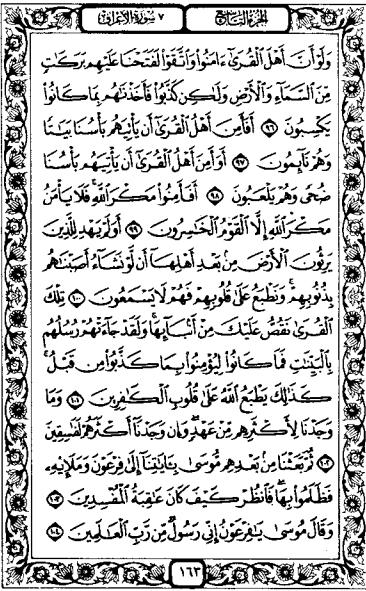 الجزء التاسع ٧ سورة الأعراف
وَلَوْ أَنَّ أَهْلَ ٱلْقُرَىٰٓ ءَامَنُوا۟ وَٱتَّقَوْا۟ لَفَتَحْنَا عَلَيْهِم بَرَكَٰتٍ
مِّنَ ٱلسَّمَآءِ وَٱلْأَرْضِ وَلَٰكِن كَذَّبُوا۟ فَأَخَذْنَٰهُم بِمَا كَانُوا۟
يَكْسِبُونَ ٩٦ أَفَأَمِنَ أَهْلُ ٱلْقُرَىٰٓ أَن يَأْتِيَهُم بَأْسُنَا بَيَٰتًا
وَهُمْ نَآئِمُونَ ٩٧ أَوَأَمِنَ أَهْلُ ٱلْقُرَىٰٓ أَن يَأْتِيَهُم بَأْسُنَا
ضُحًى وَهُمْ يَلْعَبُونَ ٩٨ أَفَأَمِنُوا۟ مَكْرَ ٱللَّهِ ۚ فَلَا يَأْمَنُ
مَكْرَ ٱللَّهِ إِلَّا ٱلْقَوْمُ ٱلْخَٰسِرُونَ ٩٩ أَوَلَمْ يَهْدِ لِلَّذِينَ
يَرِثُونَ ٱلْأَرْضَ مِنۢ بَعْدِ أَهْلِهَآ أَن لَّوْ نَشَآءُ أَصَبْنَٰهُم
بِذُنُوبِهِمْ ۚ وَنَطْبَعُ عَلَىٰ قُلُوبِهِمْ فَهُمْ لَا يَسْمَعُونَ ١٠٠ تِلْكَ
ٱلْقُرَىٰ نَقُصُّ عَلَيْكَ مِنْ أَنۢبَآئِهَا ۚ وَلَقَدْ جَآءَتْهُمْ رُسُلُهُم
بِٱلْبَيِّنَٰتِ فَمَا كَانُوا۟ لِيُؤْمِنُوا۟ بِمَا كَذَّبُوا۟ مِن قَبْلُ ۚ
كَذَٰلِكَ يَطْبَعُ ٱللَّهُ عَلَىٰ قُلُوبِ ٱلْكَٰفِرِينَ ١٠١ وَمَا
وَجَدْنَا لِأَكْثَرِهِم مِّنْ عَهْدٍ ۖ وَإِن وَجَدْنَآ أَكْثَرَهُمْ لَفَٰسِقِينَ
١٠٢ ثُمَّ بَعَثْنَا مِنۢ بَعْدِهِم مُّوسَىٰ بِـَٔايَٰتِنَآ إِلَىٰ فِرْعَوْنَ وَمَلَإِي۟هِۦ
فَظَلَمُوا۟ بِهَا ۖ فَٱنظُرْ كَيْفَ كَانَ عَٰقِبَةُ ٱلْمُفْسِدِينَ ١٠٣
وَقَالَ مُوسَىٰ يَٰفِرْعَوْنُ إِنِّى رَسُولٌ مِّن رَّبِّ ٱلْعَٰلَمِينَ ١٠٤
١٦٣